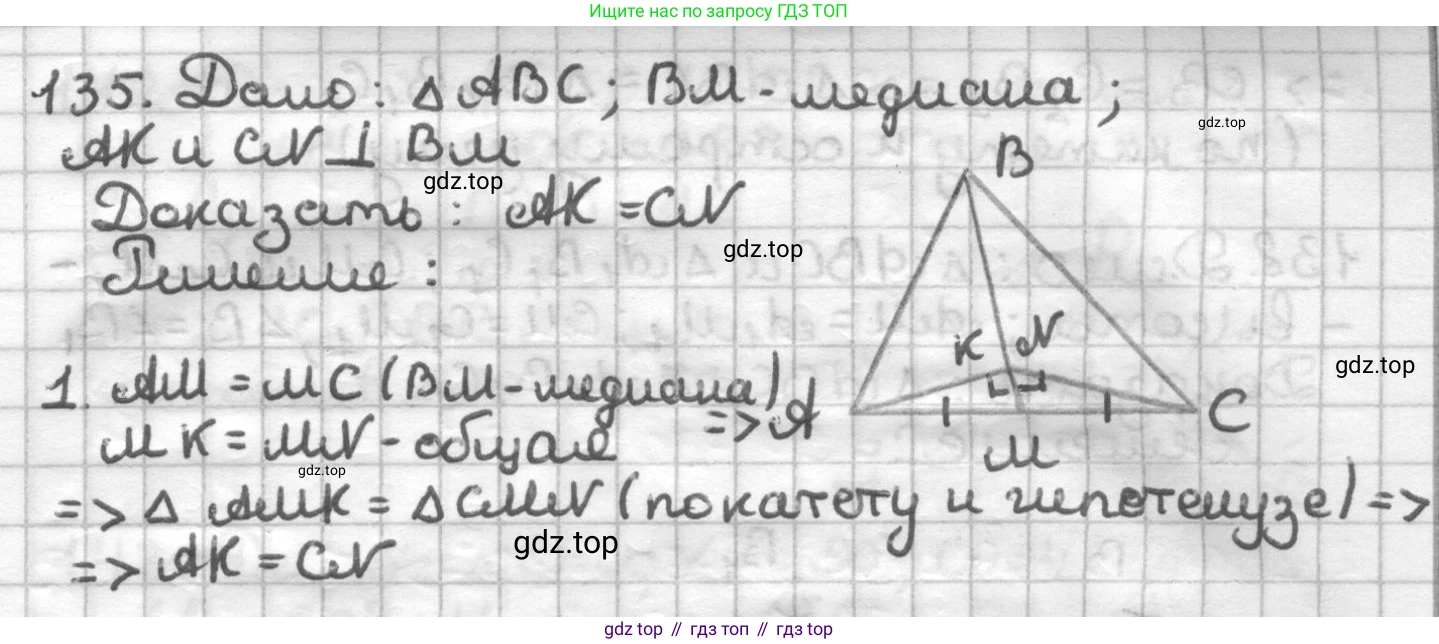 Ищите нас по запросу ГДЗ ТОП
135. Дано: △ ABC; BM - медиана;
AK и CN ⊥ BM
gdz.top
gdz.top
Доказать: AK = CN
gdz.top
Решение:
B
K N
gdz.top
A
C
M
1. AM = MC (BM - медиана)
MK = MN - общая =>
gdz.top
=> △ AMK = △ CMN (по катету и гипотенузе) =>
=> AK = CN
gdz.top
gdz top // гдз топ // гдз top